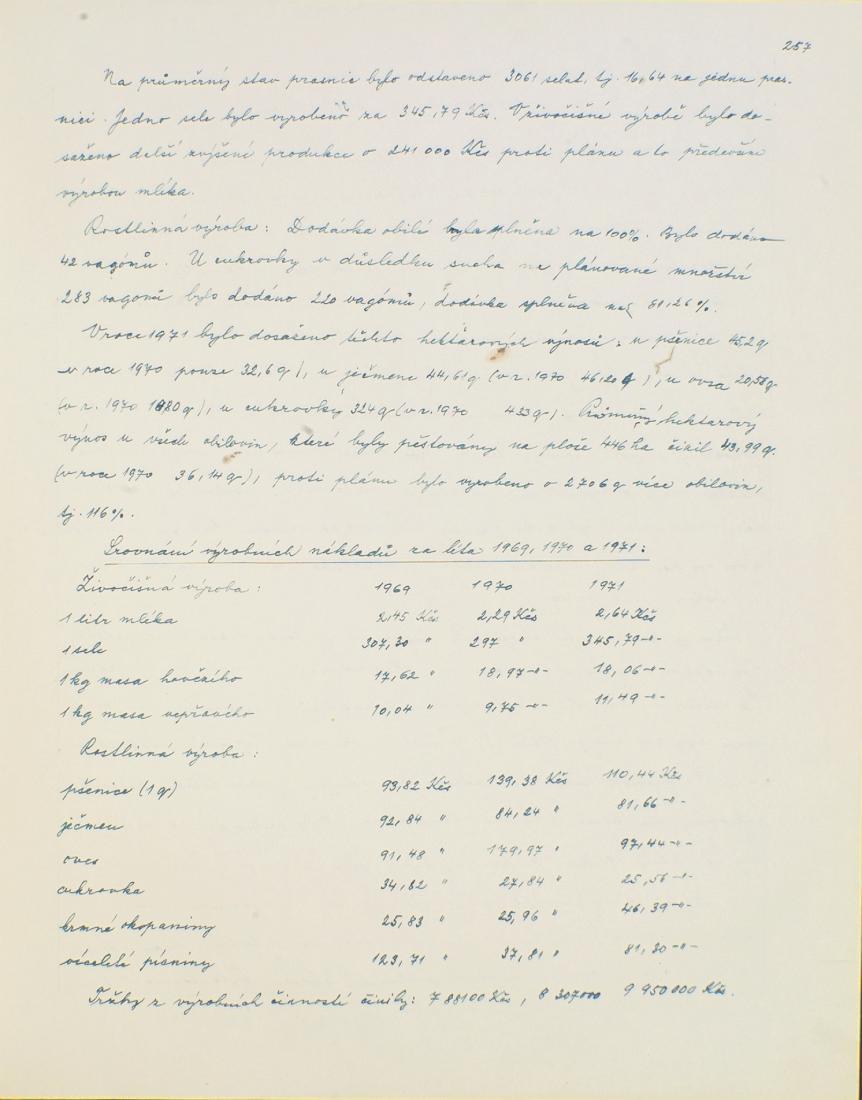 257
Na průměrný stav prasnic bylo odstaveno 3061 selat, tj. 16,64 na jednu pras-
nici. Jedno sele bylo vyrobeno za 345,79 Kčs. V živočišné výrobě bylo do-
saženo další zvýšení produkce o 241 000 Kčs proti plánu a to především
výrobou mlíka.
Rostlinná výroba: Dodávka obilí byla splněna na 100%. Bylo dodáno
42 vagónů. U cukrovky v důsledku sucha na plánované množství
283 vagonů bylo dodáno 220 vagónů, dodávka splněna na 81,26%.
V roce 1971 bylo dosaženo těchto hektarových výnosů: u pšenice 45,2 q
v roce 1970 pouze 32,6 q), u ječmene 44,61 q (v r. 1970 46,20 q), u ovsa 20,58 q
(v r. 1970 q), u cukrovky 324 q (v r. 1970 433 q). Průměrný hektarový
výnos u všech obilovin, které byly pěstovány na ploše 446 ha činil 43,99 q.
(v roce 1970 36,14 q), proti plánu bylo vyrobeno o 2706 q více obilovin,
tj. 116%.
Srovnání výrobních nákladů za léta 1969, 1970 a 1971:
Živočišná výroba: 1969 1970 1971
1 litr mlíka 2,45 Kčs 2,29 Kčs 2,64 Kčs
1 sele 307,30 " 297 " 345,79 -"-
1 kg masa hovězího 17,62 " 18,97 -"- 18,06 -"-
1 kg masa vepřového 10,04 " 9,75 -"- 11,49 -"-
Rostlinná výroba:
pšenice (1 q) 93,82 Kčs 139,38 Kčs 110,44 Kčs
ječmen 92,84 " 84,24 " 81,66 -"-
oves 91,48 " 179,97 " 97,44 -"-
cukrovka 34,82 " 27,84 " 25,56 -"-
krmné okopaniny 25,83 " 25,96 " 46,39 -"-
víceleté pícniny 123,71 " 37,81 " 81,30 -"-
Tržby z výrobních činností činily: 7 88100 Kčs, 8 307000 9 950 000 Kčs.